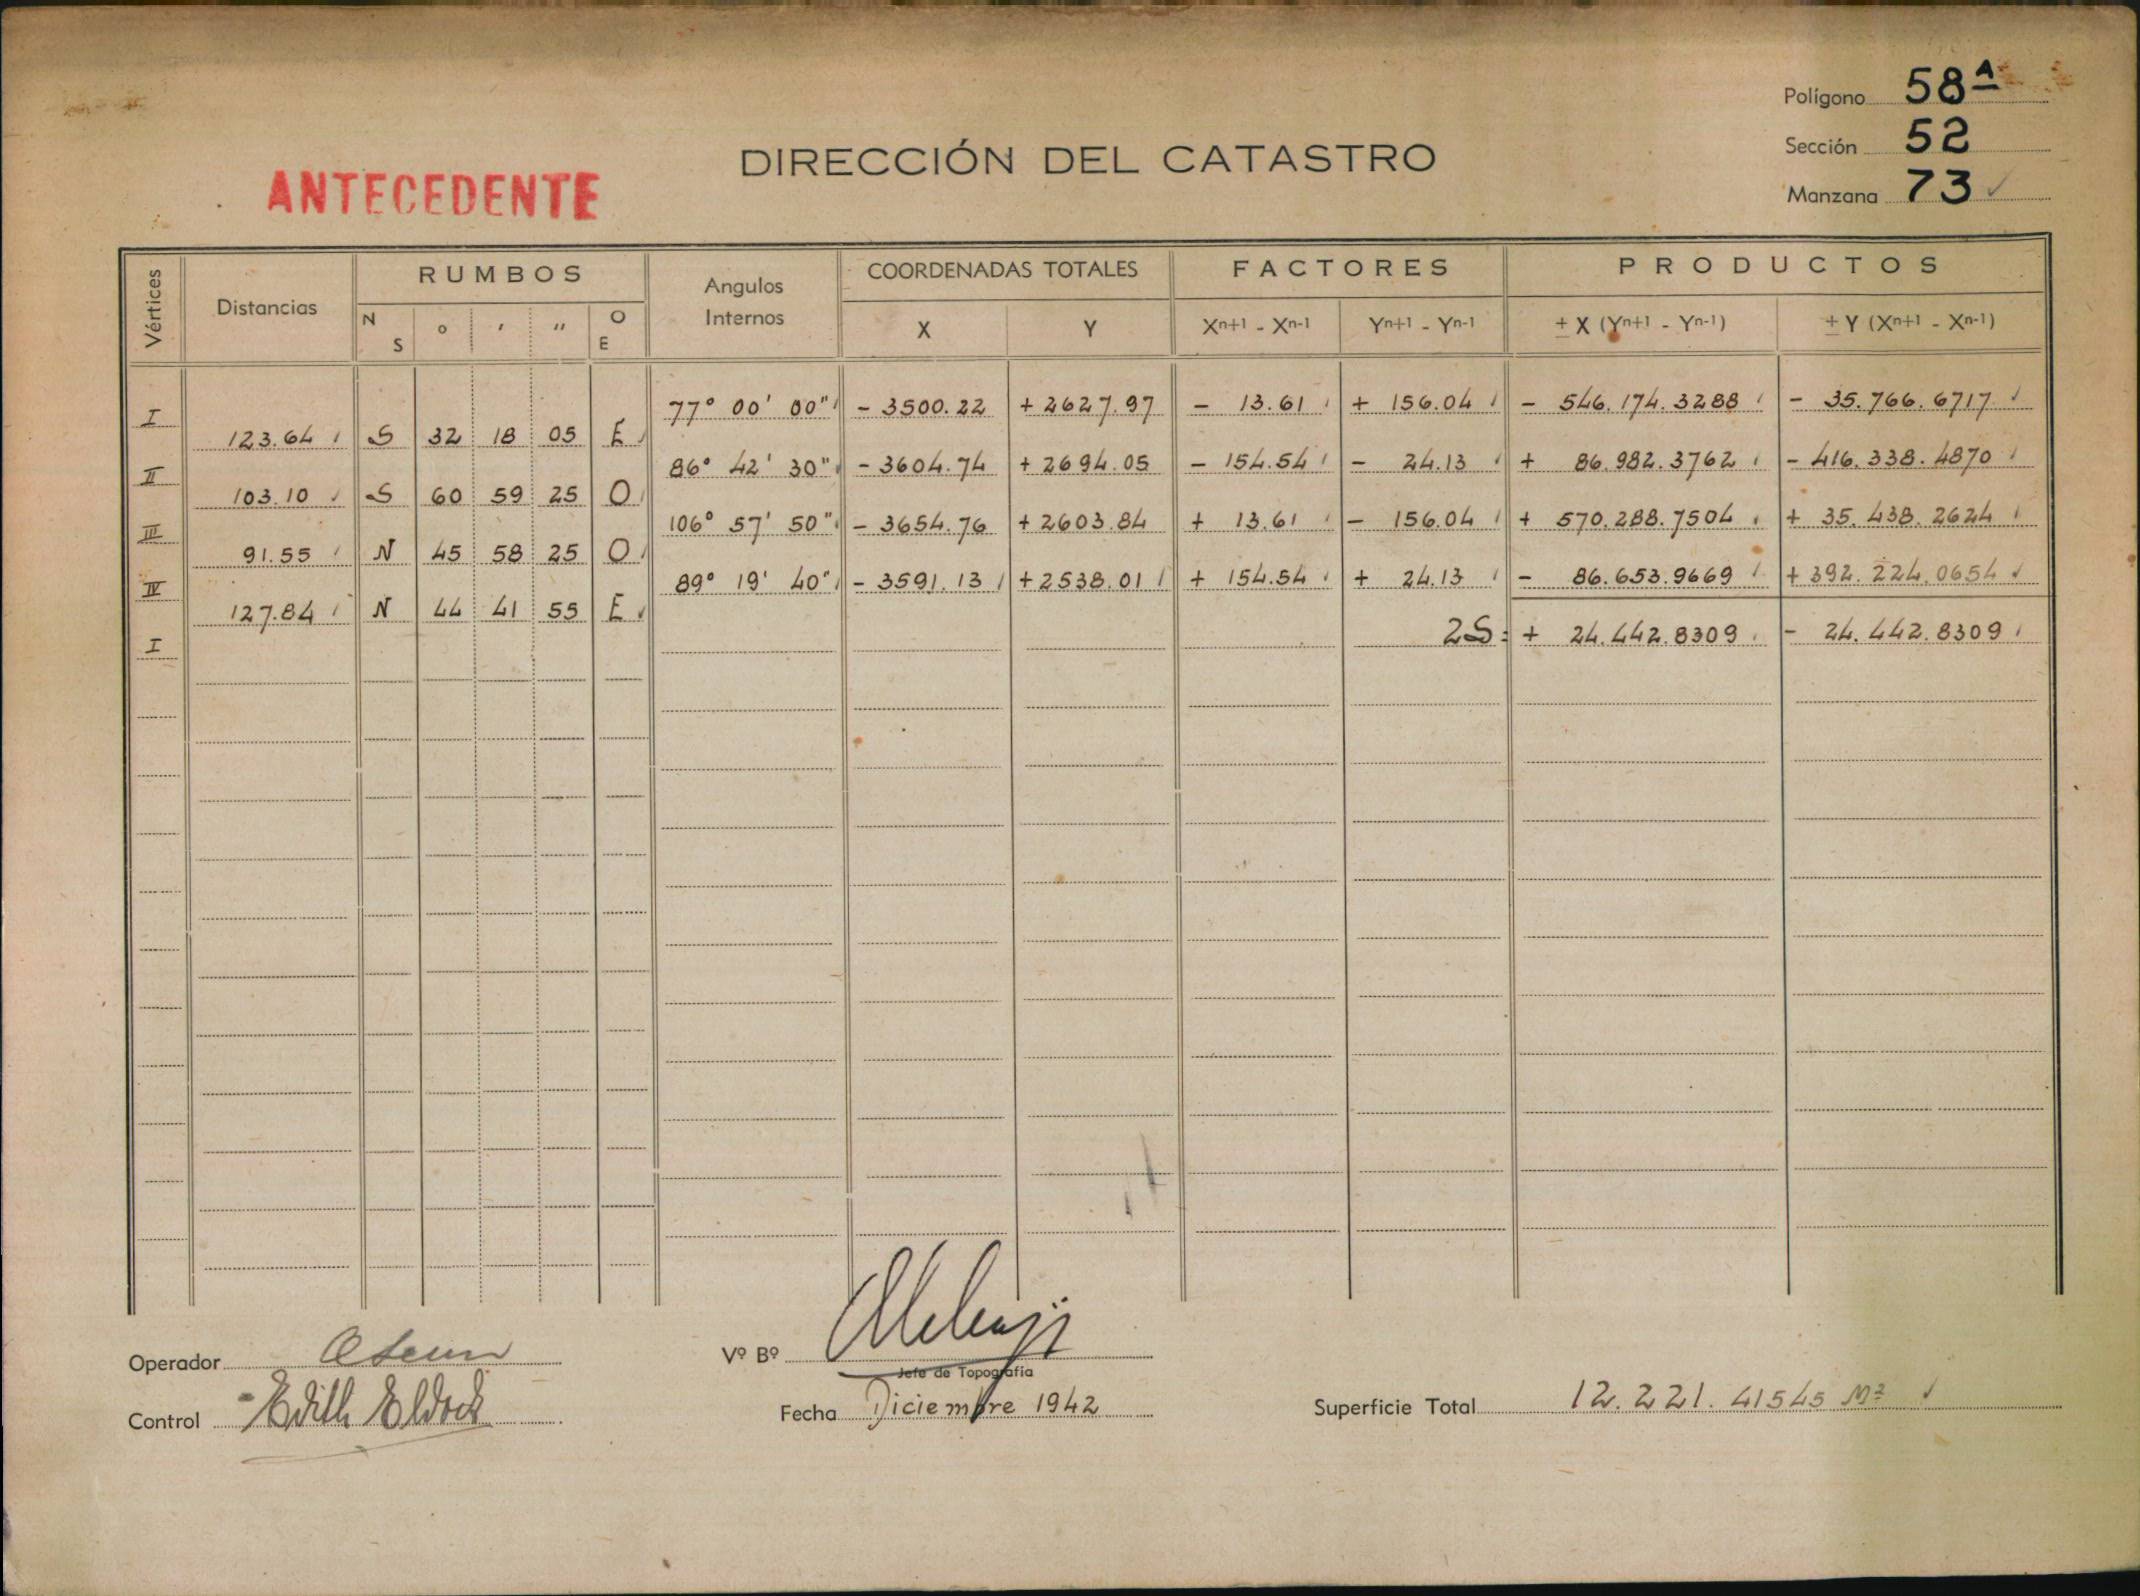 Polígono 58ᴬ
Sección 52
Manzana 73 ✓
DIRECCIÓN DEL CATASTRO
ANTECEDENTE
Vértices Distancias RUMBOS Angulos Internos COORDENADAS TOTALES FACTORES PRODUCTOS
N S ° ' '' O E X Y Xⁿ⁺¹ - Xⁿ⁻¹ Yⁿ⁺¹ - Yⁿ⁻¹ ± X (Yⁿ⁺¹ - Yⁿ⁻¹) ± Y (Xⁿ⁺¹ - Xⁿ⁻¹)
I 77° 00' 00" - 3500.22 + 2627.97 - 13.61 + 156.04 - 546.174.3288 - 35.766.6717
123.64 S 32 18 05 E
II 86° 42' 30" - 3604.74 + 2694.05 - 154.54 - 24.13 + 86.982.3762 - 416.338.4870
103.10 S 60 59 25 O
III 106° 57' 50" - 3654.76 + 2603.84 + 13.61 - 156.04 + 570.288.7504 + 35.438.2624
91.55 N 45 58 25 O
IV 89° 19' 40" - 3591.13 + 2538.01 + 154.54 + 24.13 - 86.653.9669 + 392.224.0654
127.84 N 44 41 55 E
I 2S = + 24.442.8309 - 24.442.8309
Operador
Vº Bº
Jefe de Topografía
Control Edith
Fecha Diciembre 1942
Superficie Total 12.221.41545 M² ✓